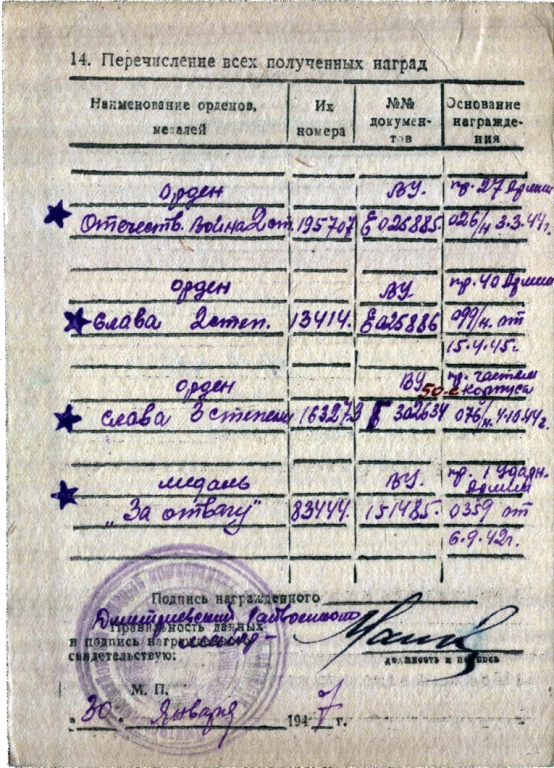 14. Перечисление всех полученных наград
Наименование орденов, медалей
Их номера
№№ документов
Основание награждения
Орден ВУ. пр. 27 Армии
Отечеств. Война 2 ст. 195707 Е 025885. 026/н 3.3.44г.
орден ВУ пр. 40 Армии
Слава 2 степ. 13414. Е 025886 099/н. от
15.4.45г.
орден ВУ пр. частям
50-с корпуса
Слава 3 степени 163273 Г 302634 076/н. 4.10.44г.
медаль ВУ. пр. 1 Ударн. Армии
„За отвагу" 83444. 151485. 0359 от
6.9.42г.
Подпись награжденного
Дмитриевский
Правильность данных
и подпись награжденного
свидетельствую:
должность и подпись
М. П.
„30" Января 1947 г.